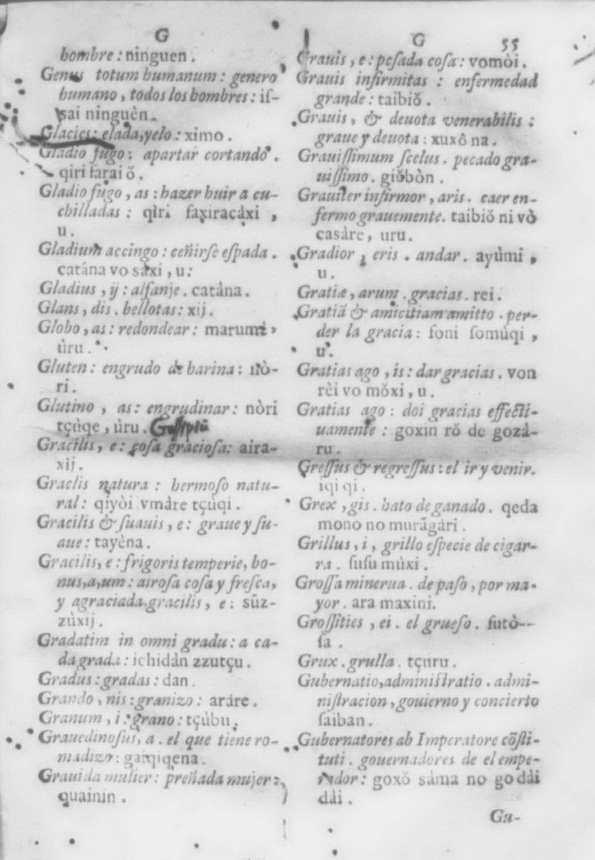 G
hombre: ninguen.
Genus totum humanum: genero
humano, todos los hombres: iſ-
ſai ninguèn.
Glacies: elada, yelo: ximo.
Gladio fugo: apartar cortando.
qiri farai ŏ.
Gladio fugo, as: hazer huir a cu-
chilladas: qiri faxiracàxi,
u.
Gladium accingo: ceñirſe eſpada.
catàna vo saxi, u:
Gladius, ij: alfanje. catàna.
Glans, dis. bellotas: xij.
Globo, as: redondear: marumi,
ùru.
Gluten: engrudo de harina: nò-
ri.
Glutino, as: engrudinar: nòri
tçùqe, ùru.
Gracilis, e: coſa gracioſa: aira-
xij.
Graclis natura: hermoſo natu-
ral: qiyòi vmàre tçùqi.
Gracilis & ſuauis, e: graue y ſu-
aue: tayèna.
Gracilis, e: frigoris temperie, bo-
nus, a, um: airoſa coſa y freſca,
y agraciada gracilis, e: sūz-
zùxij.
Gradatim in omni gradu: a ca-
da grada: ichidàn zzutçu.
Gradus: gradas: dan.
Grando, nis: granizo: aràre.
Granum, i: grano: tçùbu.
Grauedinoſus, a. el que tiene ro-
madizo: gaiqiqena.
Grauida mulier: preñada mujer:
quainin.
G 55
Grauis, e: peſada coſa: vomòi.
Grauis infirmitas: enfermedad
grande: taibiŏ.
Grauis, & deuota venerabilis:
graue y deuota: xuxô na.
Grauiſſimum ſcelus. pecado gra-
uiſſimo. giŏbòn.
Grauiter infirmor, aris. caer en-
fermo grauemente. taibiŏ ni vò
casàre, uru.
Gradior, eris. andar. ayùmi,
u.
Gratiæ, arum. gracias. rei.
Gratiā & amicitiam amitto. per-
der la gracia: foni fomùqi,
u.
Gratias ago, is: dar gracias. von
rèi vo mŏxi, u.
Gratias ago: doi gracias effecti-
uamente: goxin rŏ de gozà-
ru.
Greſſus & regreſſus: el ir y venir.
iqi qi.
Grex, gis. hato de ganado. qeda
mono no muràgàri.
Grillus, i, grillo eſpecie de cigar-
ra. ſuſu mùxi.
Groſſa minerua. de paſo, por ma-
yor. ara maxini.
Groſſities, ei. el grueſo. futò-
ſa.
Grux. grulla. tçuru.
Gubernatio, adminiſtratio. admi-
niſtracion, gouierno y concierto
ſaiban.
Gubernatores ab Imperatore cõſti-
tuti. gouernadores de el empe-
rador: goxŏ sàma no go dài
dài.
Gu-